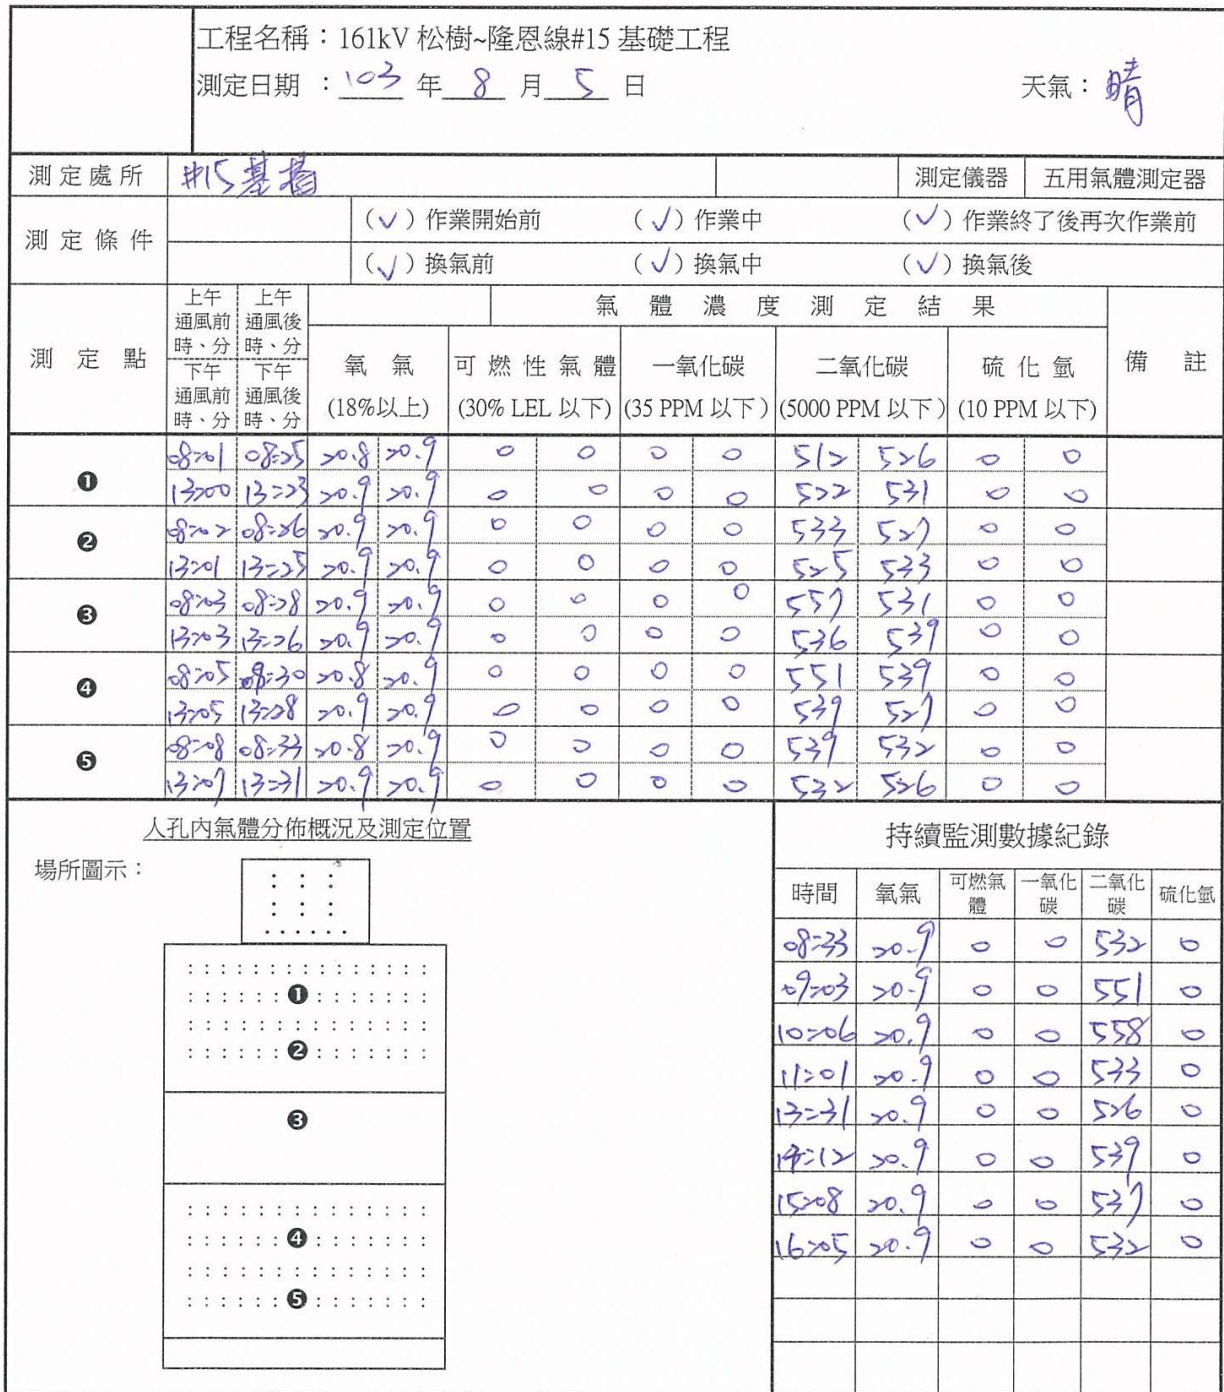 工程名稱：161kV 松樹~隆恩線#15 基礎工程
測定日期 ：103 年 8 月 5 日 天氣：晴
測定處所 #15基樁 測定儀器 五用氣體測定器
測定條件
(✓) 作業開始前 (✓) 作業中 (✓) 作業終了後再次作業前
(✓) 換氣前 (✓) 換氣中 (✓) 換氣後
測定點
上午通風前時、分 上午通風後時、分
下午通風前時、分 下午通風後時、分
氣體濃度測定結果
氧氣 可燃性氣體 一氧化碳 二氧化碳 硫化氫 備註
(18%以上) (30% LEL 以下) (35 PPM 以下) (5000 PPM 以下) (10 PPM 以下)
❶ 08:01 08:25 20.8 20.9 0 0 0 0 512 526 0 0
13:00 13:23 20.9 20.9 0 0 0 0 522 531 0 0
❷ 08:02 08:26 20.9 20.9 0 0 0 0 533 527 0 0
13:01 13:25 20.9 20.9 0 0 0 0 525 533 0 0
❸ 08:03 08:28 20.9 20.9 0 0 0 0 557 531 0 0
13:03 13:26 20.9 20.9 0 0 0 0 536 539 0 0
❹ 08:05 08:30 20.8 20.9 0 0 0 0 551 539 0 0
13:05 13:28 20.9 20.9 0 0 0 0 539 527 0 0
❺ 08:08 08:33 20.8 20.9 0 0 0 0 539 532 0 0
13:07 13:31 20.9 20.9 0 0 0 0 532 526 0 0
人孔內氣體分佈概況及測定位置
場所圖示：
❶
❷
❸
❹
❺
持續監測數據紀錄
時間 氧氣 可燃氣體 一氧化碳 二氧化碳 硫化氫
08:33 20.9 0 0 532 0
09:03 20.9 0 0 551 0
10:06 20.9 0 0 558 0
11:01 20.9 0 0 533 0
13:31 20.9 0 0 526 0
14:12 20.9 0 0 539 0
15:08 20.9 0 0 537 0
16:05 20.9 0 0 532 0